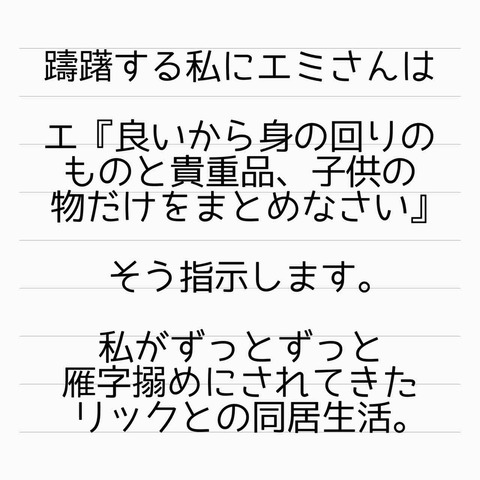 躊躇する私にエミさんは
エ『良いから身の回りの
ものと貴重品、子供の
物だけをまとめなさい』
そう指示します。
私がずっとずっと
雁字搦めにされてきた
リックとの同居生活。